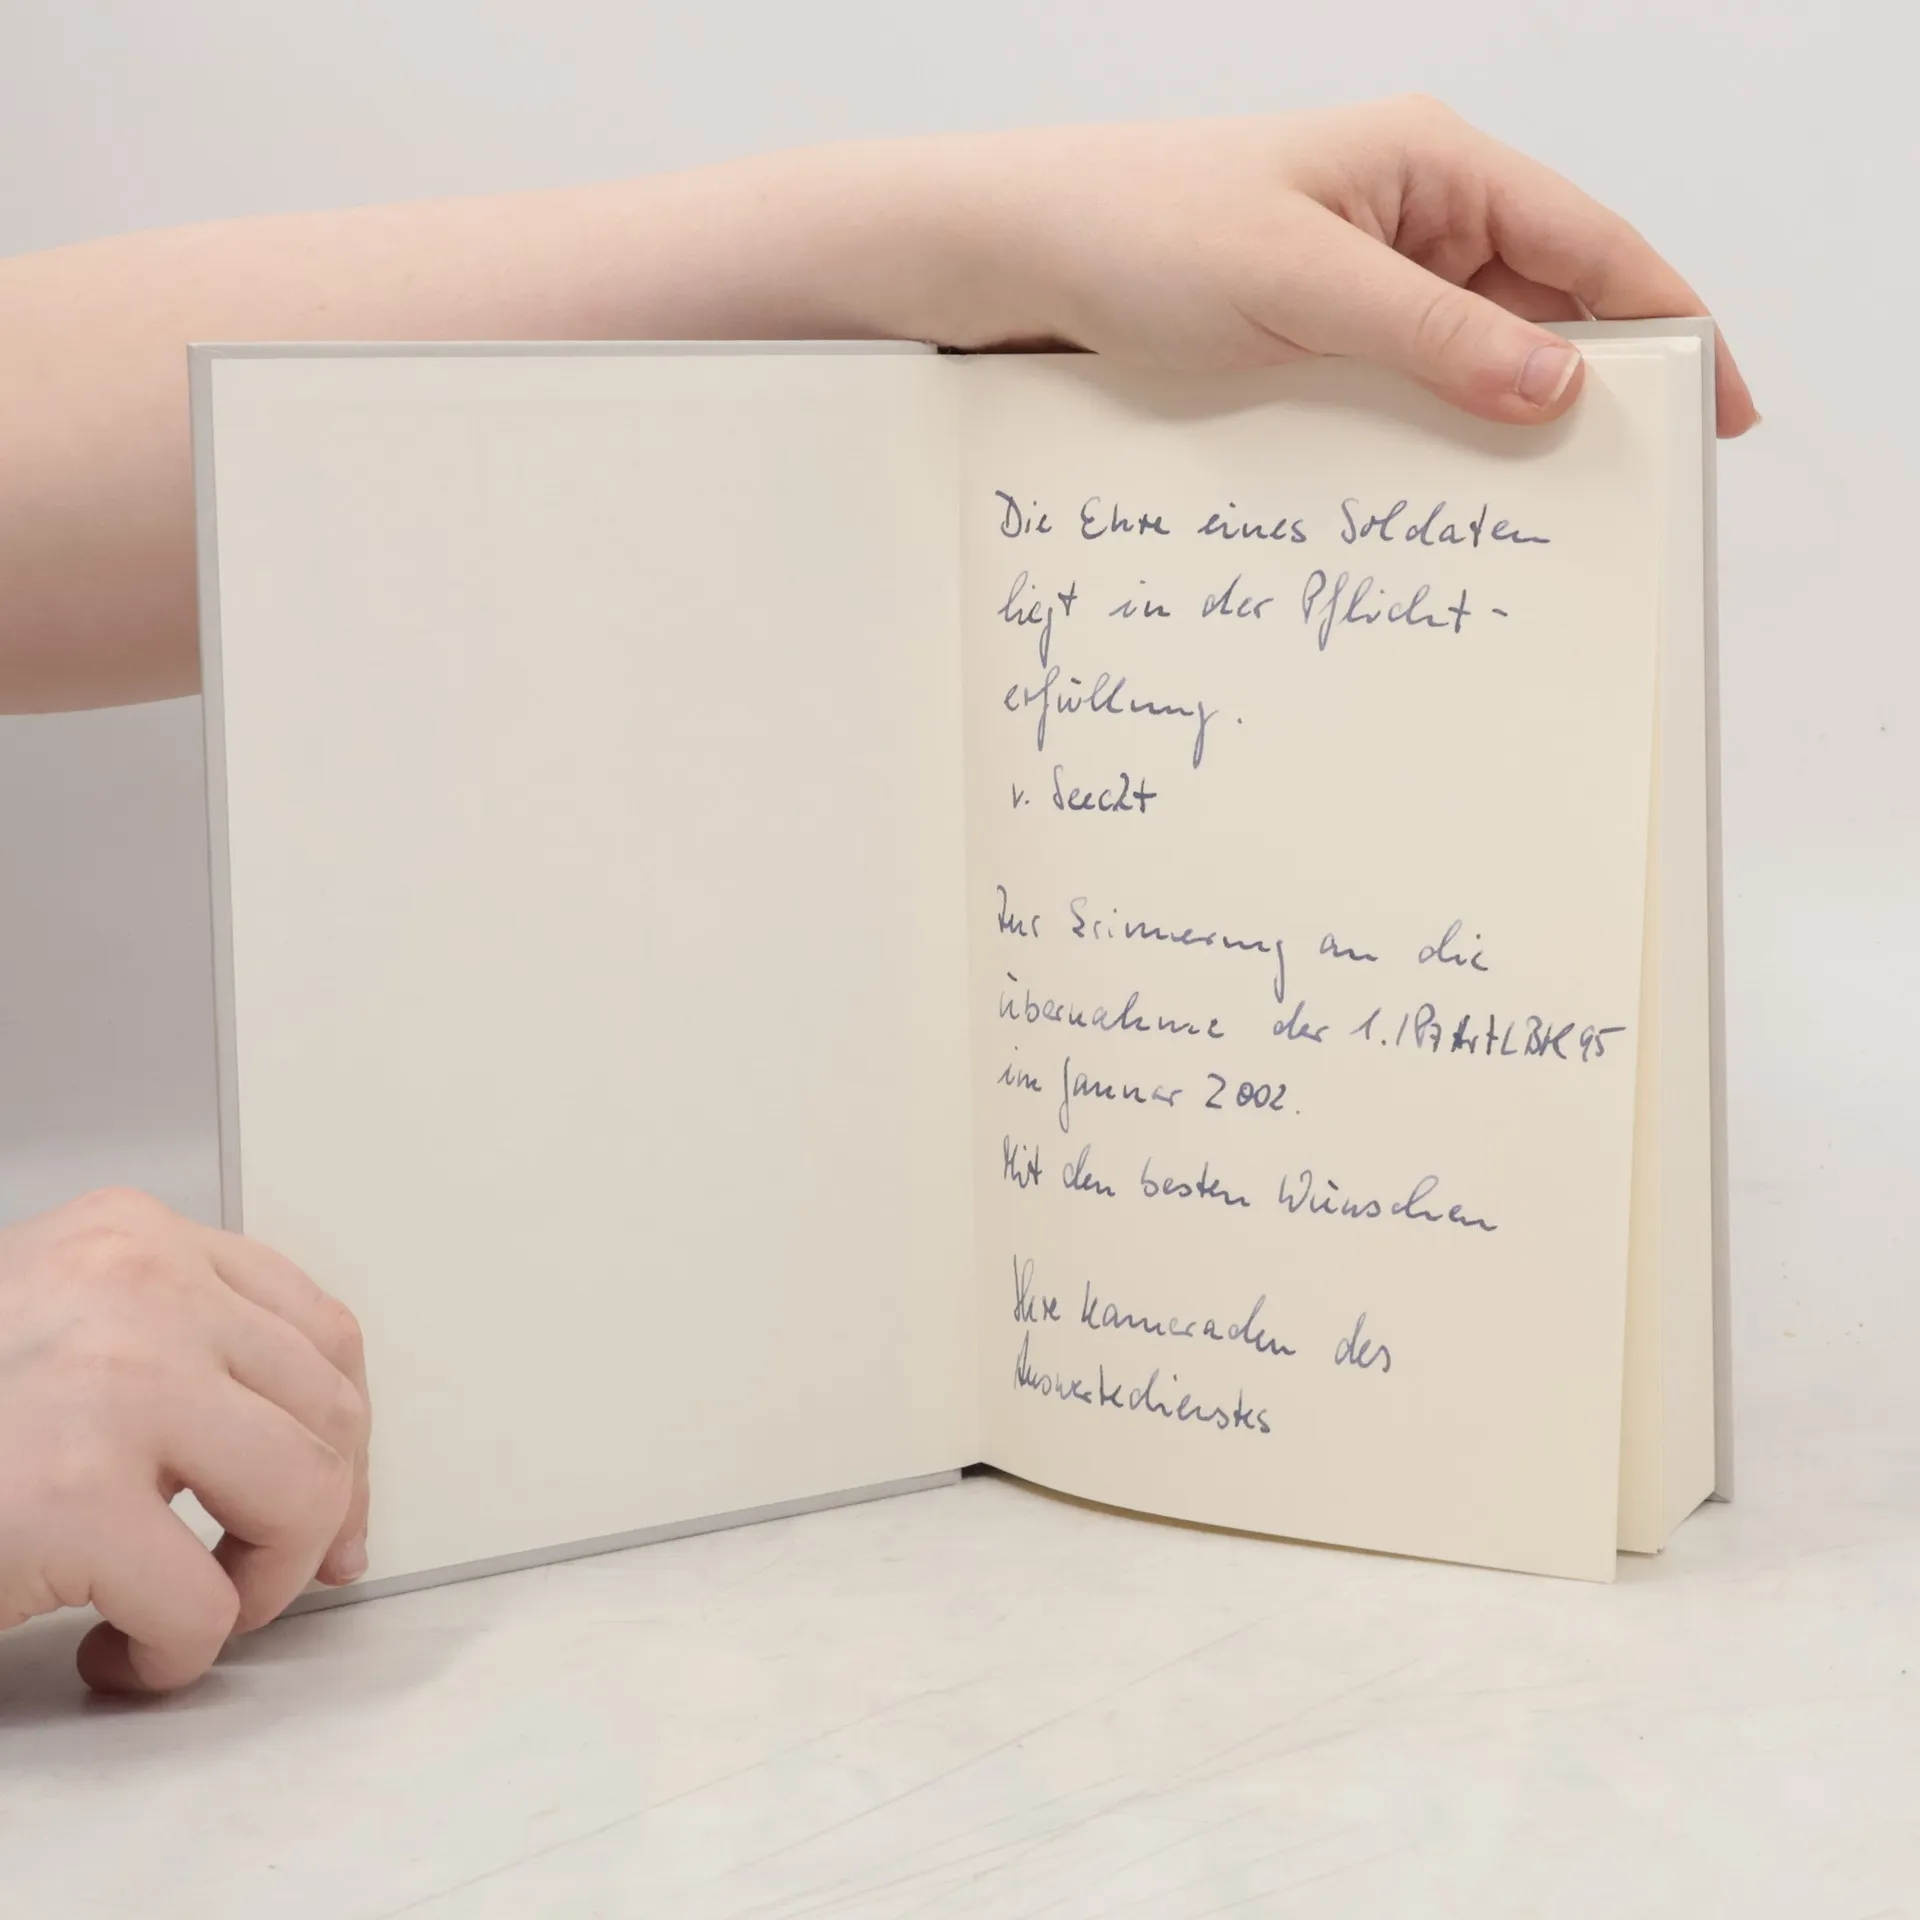 Die Ehre eines Soldaten
liegt in der Pflicht-
erfüllung.
v. Seeckt
Zur Erinnerung an die
übernahme der 1./PzArtLBtl 95
im Januar 2002.
Mit den besten Wünschen
Ihre Kameraden des
Auswertedienstes